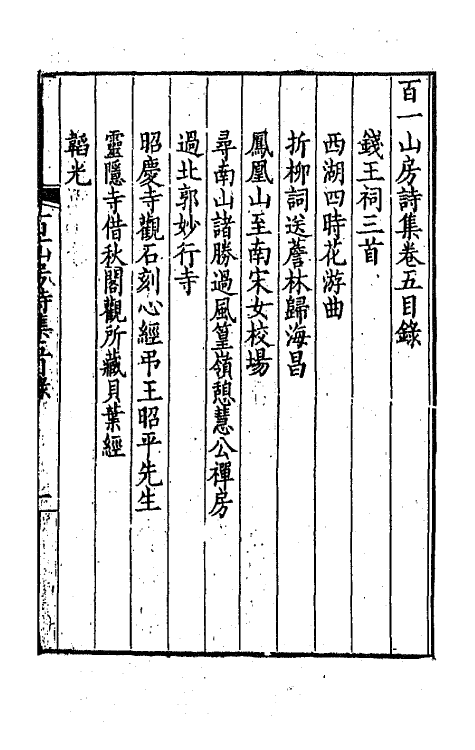 百一山房詩集卷五目錄
錢王祠三首
西湖四時花游曲
折柳詞送薝林歸海昌
鳳凰山至南宋女校場
尋南山諸勝過風篁嶺憩慧公禪房
過北郭妙行寺
昭慶寺觀石刻心經弔王昭平先生
靈隱寺借秋閣觀所藏貝葉經
韜光
百一山房詩集目錄
一